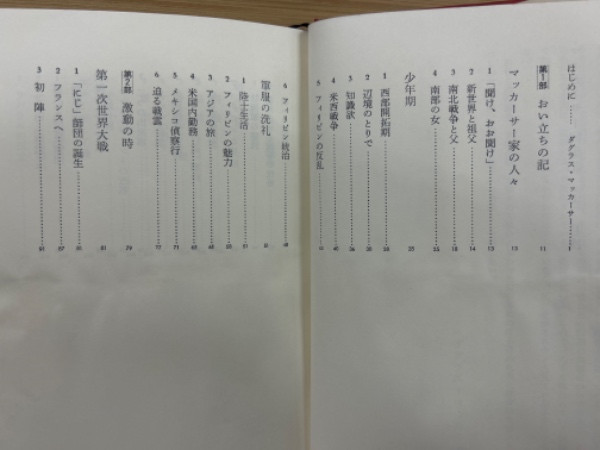 はじめに…… ダグラス・マッカーサー…… 1
第1部 おい立ちの記 11
マッカーサー家の人々 13
1 「聞け、おお聞け」 13
2 新世界と祖父 14
3 南北戦争と父 18
4 南部の女 25
少年期
1 西部開拓期
2 辺境のとりで
3 知識欲
4 米西戦争
5 フィリピンの反乱
6 フィリピン統治
軍服の洗礼
1 陸士生活
2 フィリピンの魅力
3 アジアの旅
4 米国内勤務
5 メキシコ偵察行 71
6 迫る戦雲 77
第2部 激動の時 79
第一次世界大戦 81
1 「にじ」師団の誕生
2 フランスへ 87
3 初陣